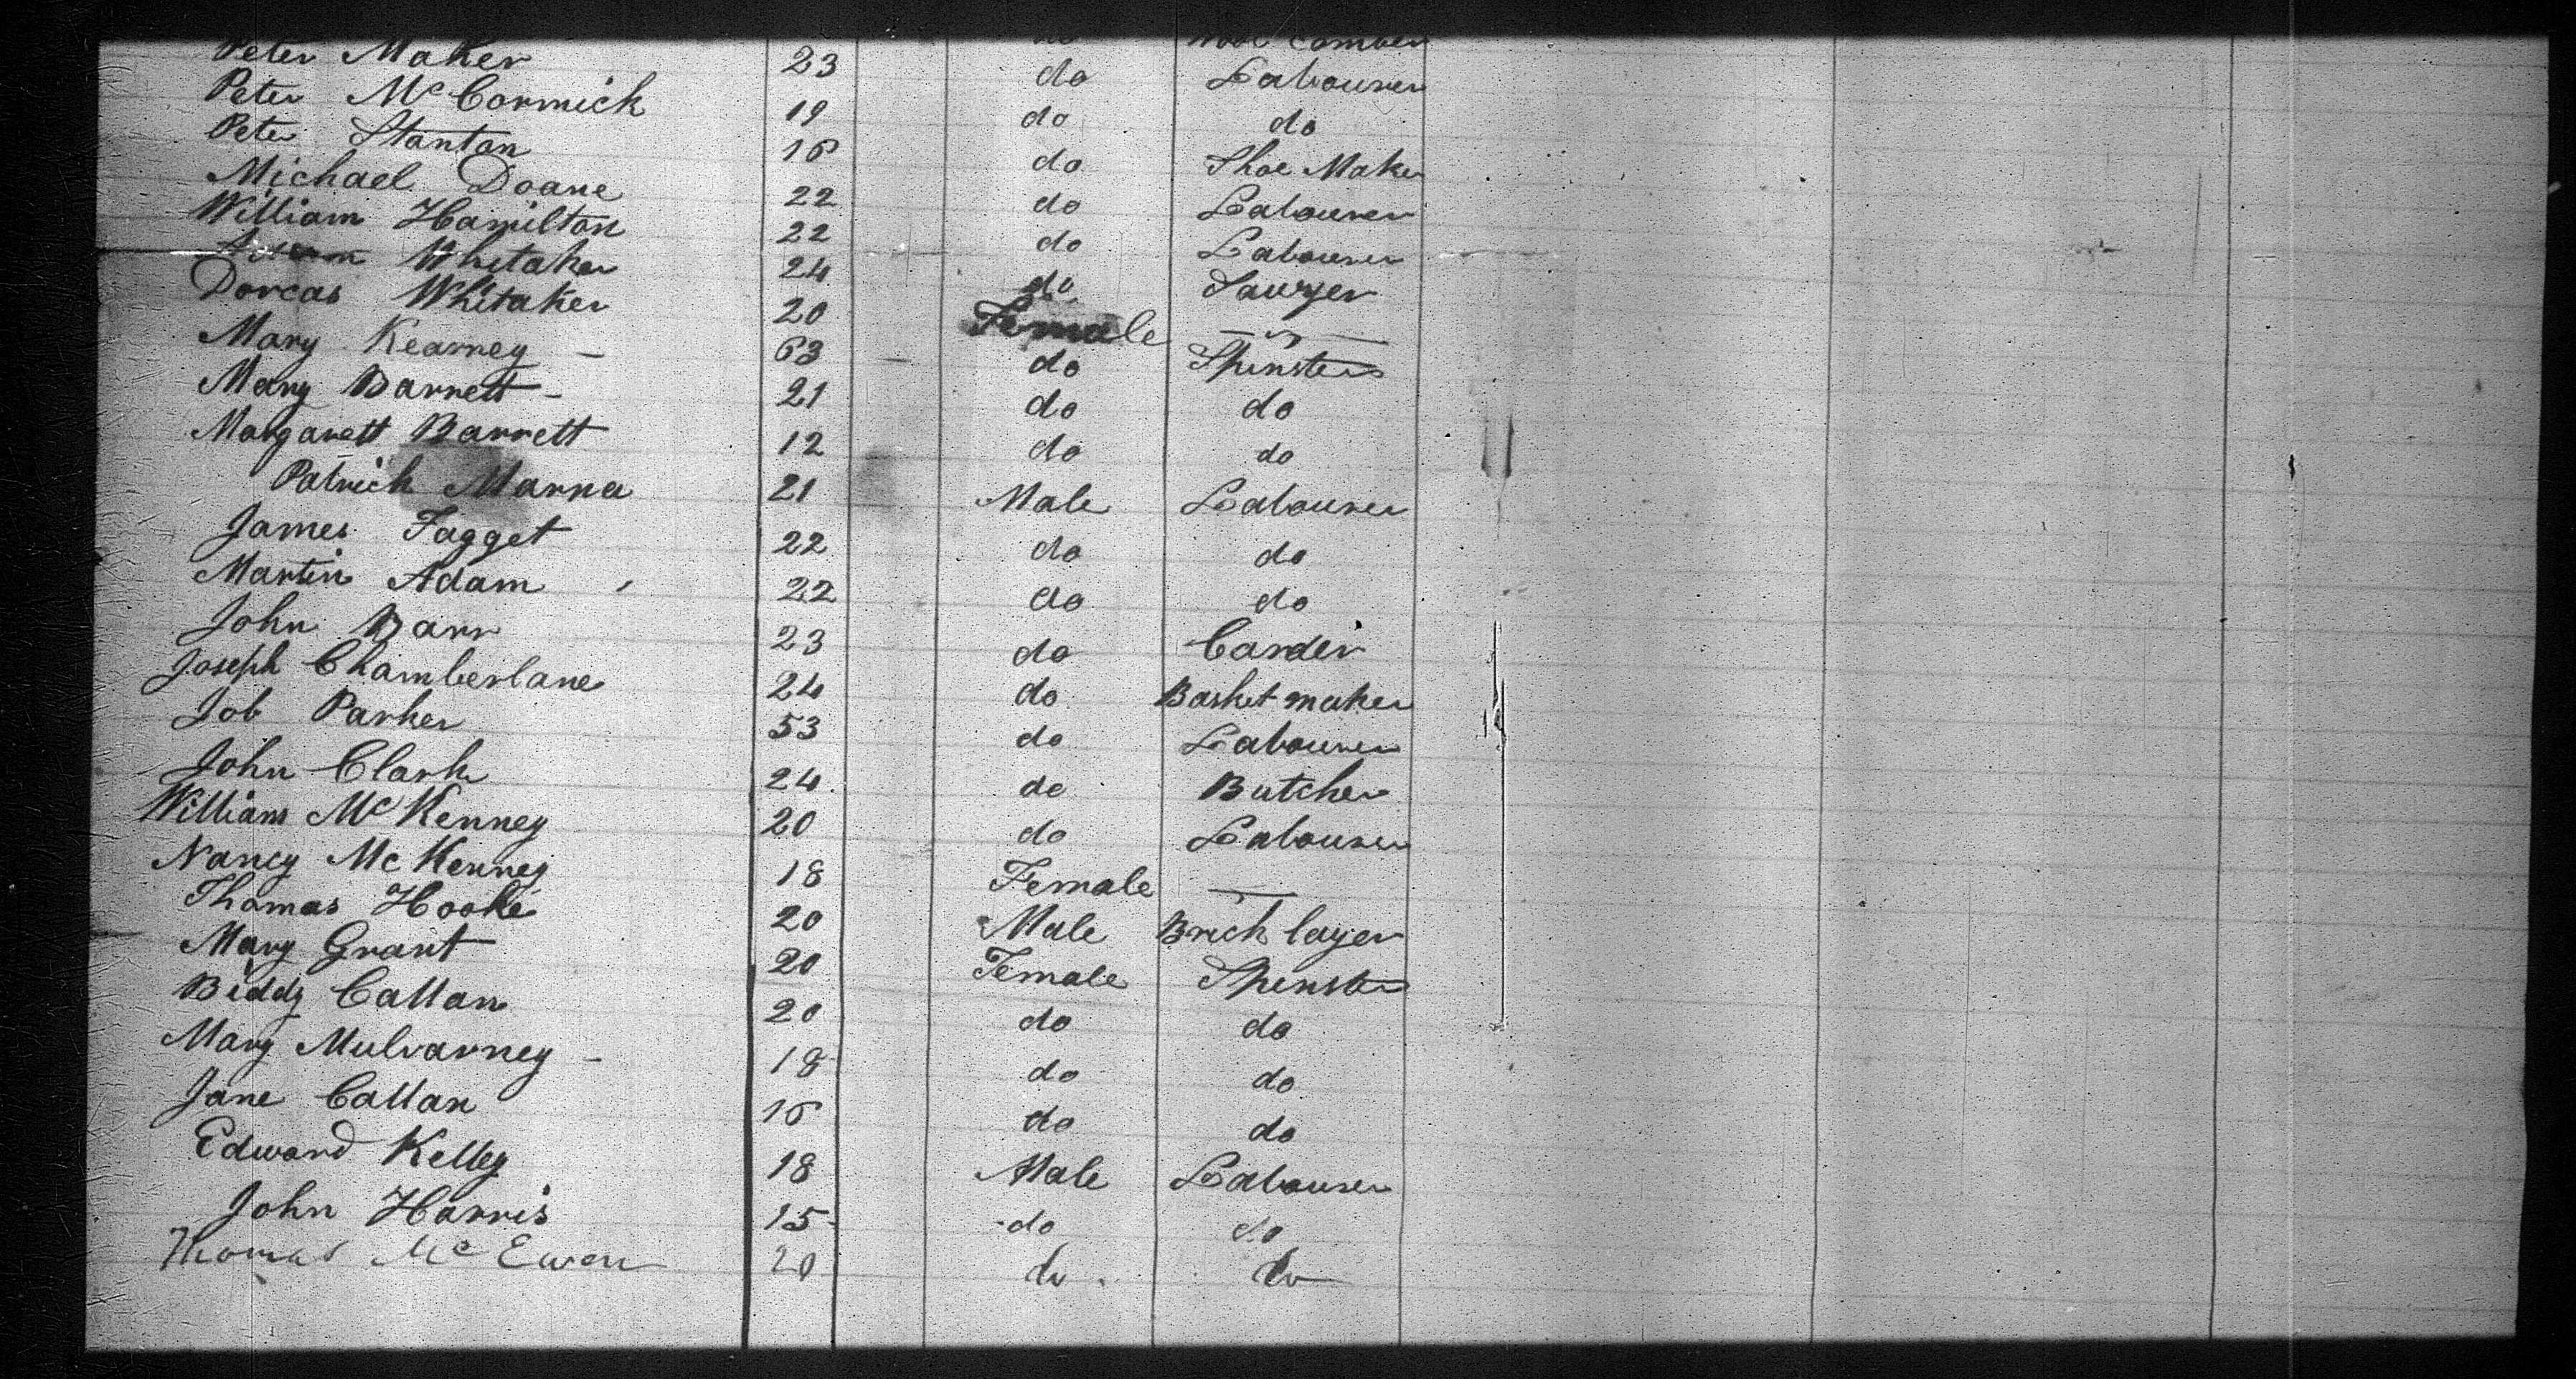 Wool Comber
Peter Maker 23 do Labourer
Peter McCormick 19 do do
Peter Stanton 16 do Shoe Maker
Michael Doane 22 do Labourer
William Hamilton 22 do Labourer
Whitaker 24 do Sawyer
Dorcas Whitaker 20 Female —
Mary Kearney — 63 — do Spinster
Mary Barrett - 21 do do
Margarett Barrett 12 do do
Patrick Marna 21 Male Labourer
James Fagget 22 do do
Martin Adam 22 do do
John Barr 23 do Carder
Joseph Chamberlane 24 do Basket maker
Job Parker 53 do Labourer
John Clark 24 do Butcher
William McKenney 20 do Labourer
Nancy McKenney 18 Female —
Thomas Hooke 20 Male Brick layer
Mary Grant 20 Female Spinster
Biddy Callan 20 do do
Mary Mulvarney - 18 do do
Jane Callan 16 do do
Edward Kelley 18 Male Labourer
John Harris 15 do do
Thomas McEwen 20 do do